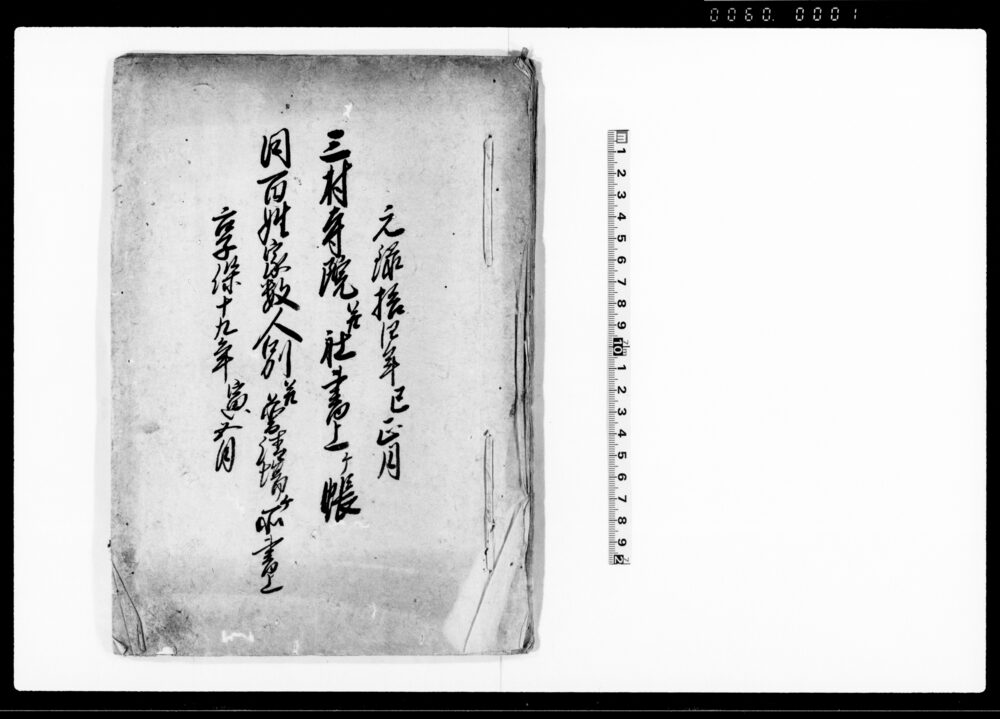 0060. 0001
元禄拾四年巳正月
三村寺院并社書上ヶ帳
同百姓家数人別并普請場ヶ所書上
享保十九年寅五月
1 2 3 4 5 6 7 8 9 10 1 2 3 4 5 6 7 8 9 2